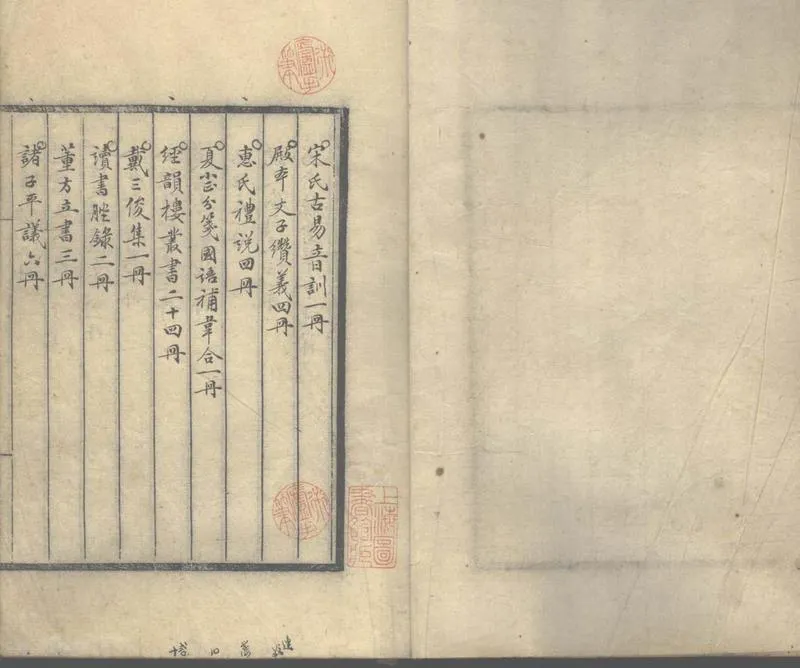 宋氏古易音訓一冊
殿本文子纘義四冊
惠氏禮説四冊
夏小正分箋國語補韋合一冊
經韻樓叢書二十四冊
戴三俊集一冊
讀書脞錄二冊
董方立書三冊
諸子平議六冊
上海圖書館藏